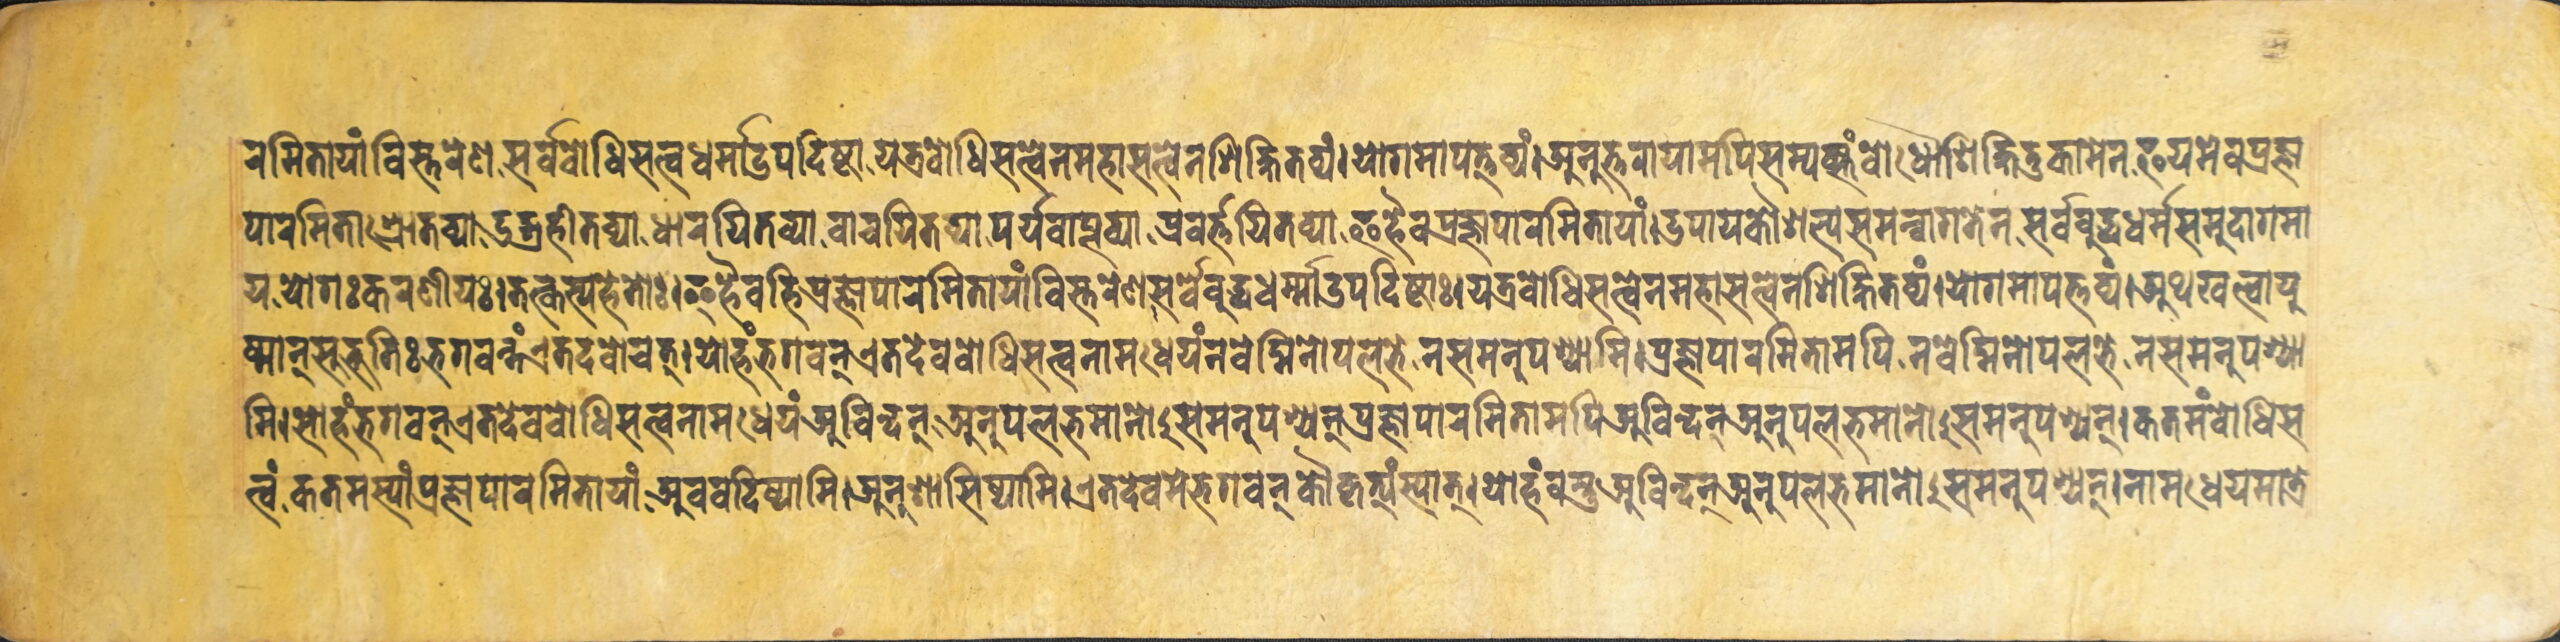 रमितायां विस्तरेण सर्वबोधिसत्वधर्माउपदिष्टा यत्रबोधिसत्वेनमहासत्वेनशिक्षितव्यं।योगमापत्तव्यं।अनुत्तरायामपिसम्यक्संबोधौशिक्षितुकामेन इयमेवप्रज्ञा
पारमिताश्रोतव्या उद्ग्रहीतव्या धारयितव्या वाचयितव्या पर्यवाप्तव्या प्रवर्त्तयितव्या इहैवप्रज्ञापारमितायां।उपायकौशल्यसमन्वागतेन सर्वबुद्धधर्मसमुदागमा
य योगःकरणीयः।तत्कस्यहेतोः।इहैवहिप्रज्ञापारमितायांविस्तरेणसर्वेबुद्धधर्म्माउपदिष्टाः।यत्रबोधिसत्वेनमहासत्वेनशिक्षितव्यं।योगमापत्तव्यं।अथखल्वायु
ष्मान्सुभूतिःभगवन्तंएतदवोचत्।योहंभगवन्एतदेवबोधिसत्वनामधेयंनवेद्मिनोपलभे नसमनुपश्यामि।प्रज्ञापारमितामपि नवेद्मिनोपलभे नसमनुपश्या
मि।सोहंभगवन्एतदेवबोधिसत्वनामधेयंअविन्दन् अनुपलभमानोऽसमनुपश्यन्प्रज्ञापारमितामपिअविन्दन्अनुपलभमानोऽसमनुपश्यन्।कतमंबोधिस
त्वं कतमस्यांप्रज्ञापारमितायां अववदिष्यामि।अनुशासिष्यामि।एतदेवमेभगवन्कौकृत्यंस्यात्।योहंवस्तुअविन्दन्अनुपलभमानोऽसमनुपश्यन्।नामधेयमात्रे